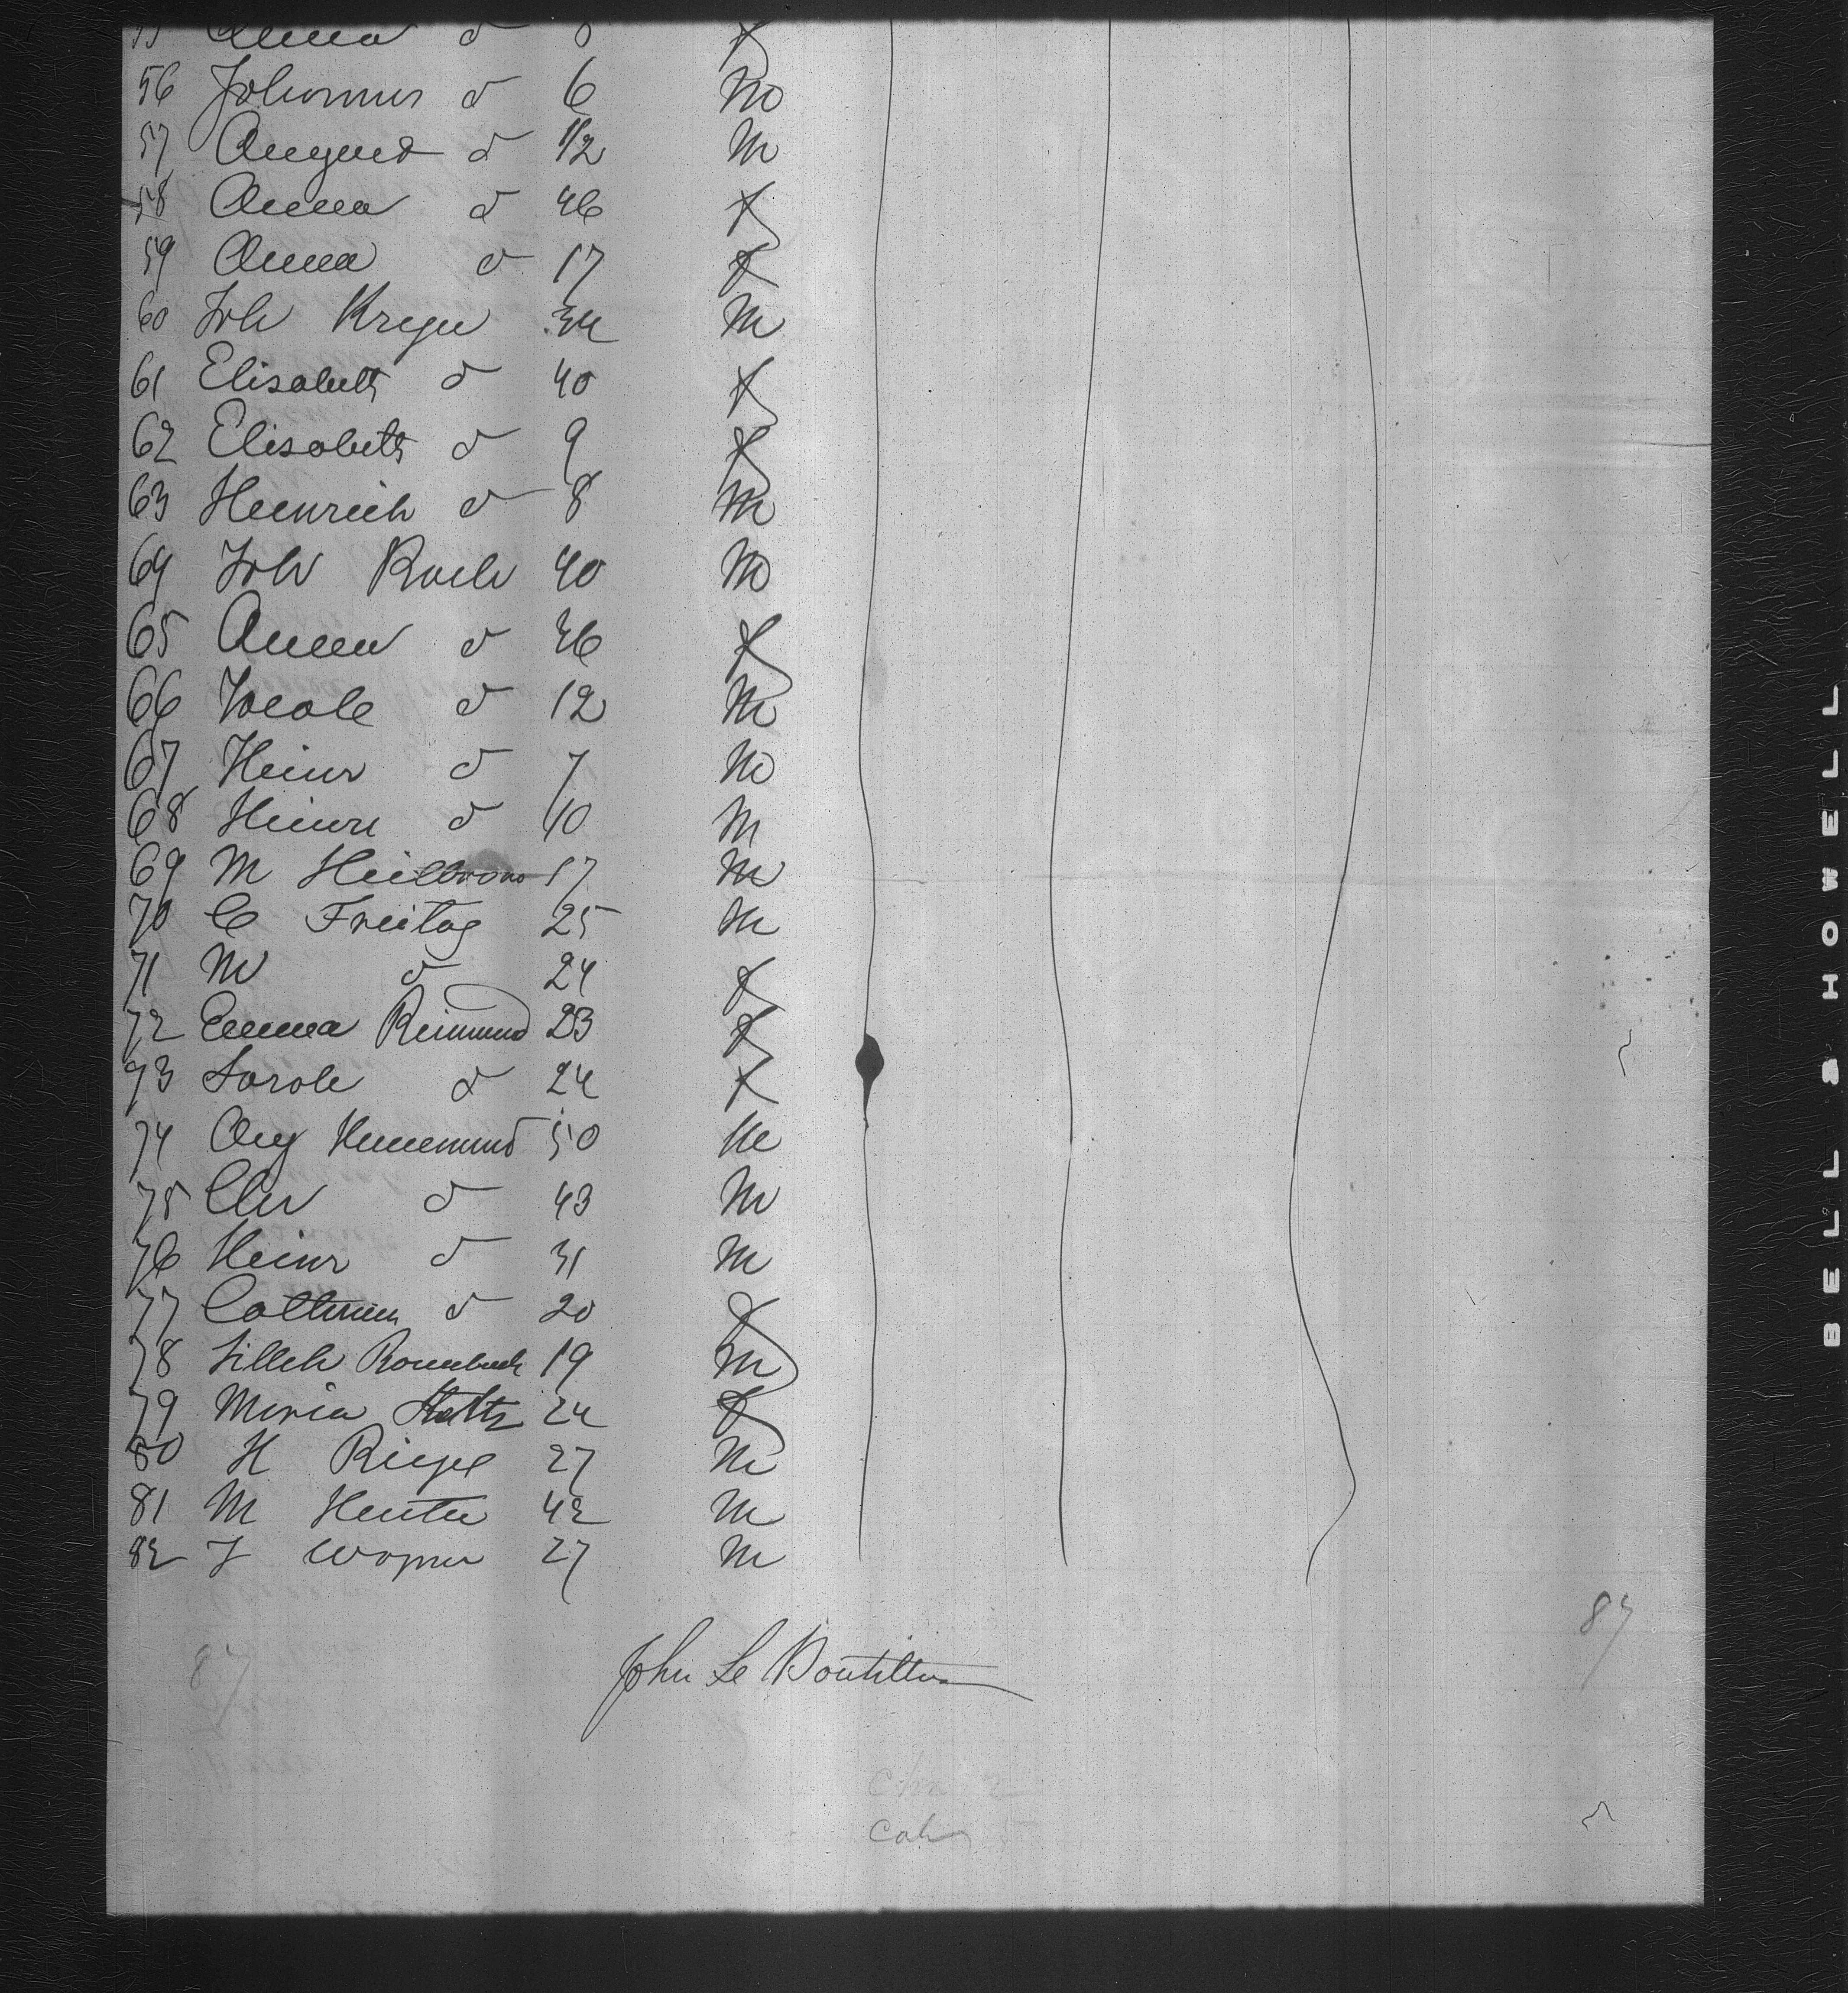 55 Anna d
56 Johannes d 6 M
57 August d 1/2 M
58 Anna d 46 f
59 Anna d 17 f
60 Joh 34 M
61 Elisabeth d 40 f
62 Elisabeth d 9 f
63 Heinrich d 8 M
64 Joh Koch 40 M
65 Anna d 36 f
66 Jacob d 12 M
67 Heinr d 7 M
68 Heinr d 10 M
69 M Heilbronn 17 M
70 C Freitag 25 M
71 M d 24 f
72 Emma Reimund 23 f
73 Sarah d 24 f
74 Aug 50 M
75 Chr d 43 M
76 Heinr d 31 M
77 d 20 f
78 19 M
79 Maria 24 f
80 H Riege 27 M
81 M 42 M
82 J Wagner 27 M
87
John Le Boutillier
87
BELL & HOWELL